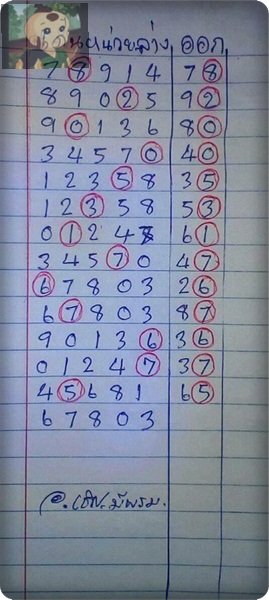 หน่วยล่าง ออก
7 8 9 1 4 7 8
8 9 0 2 5 9 2
9 0 1 3 6 8 0
3 4 5 7 0 4 0
1 2 3 5 8 3 5
1 2 3 5 8 5 3
0 1 2 4 6 1
3 4 5 7 0 4 7
6 7 8 0 3 2 6
6 7 8 0 3 8 7
9 0 1 3 6 3 6
0 1 2 4 7 3 7
4 5 6 8 1 6 5
6 7 8 0 3